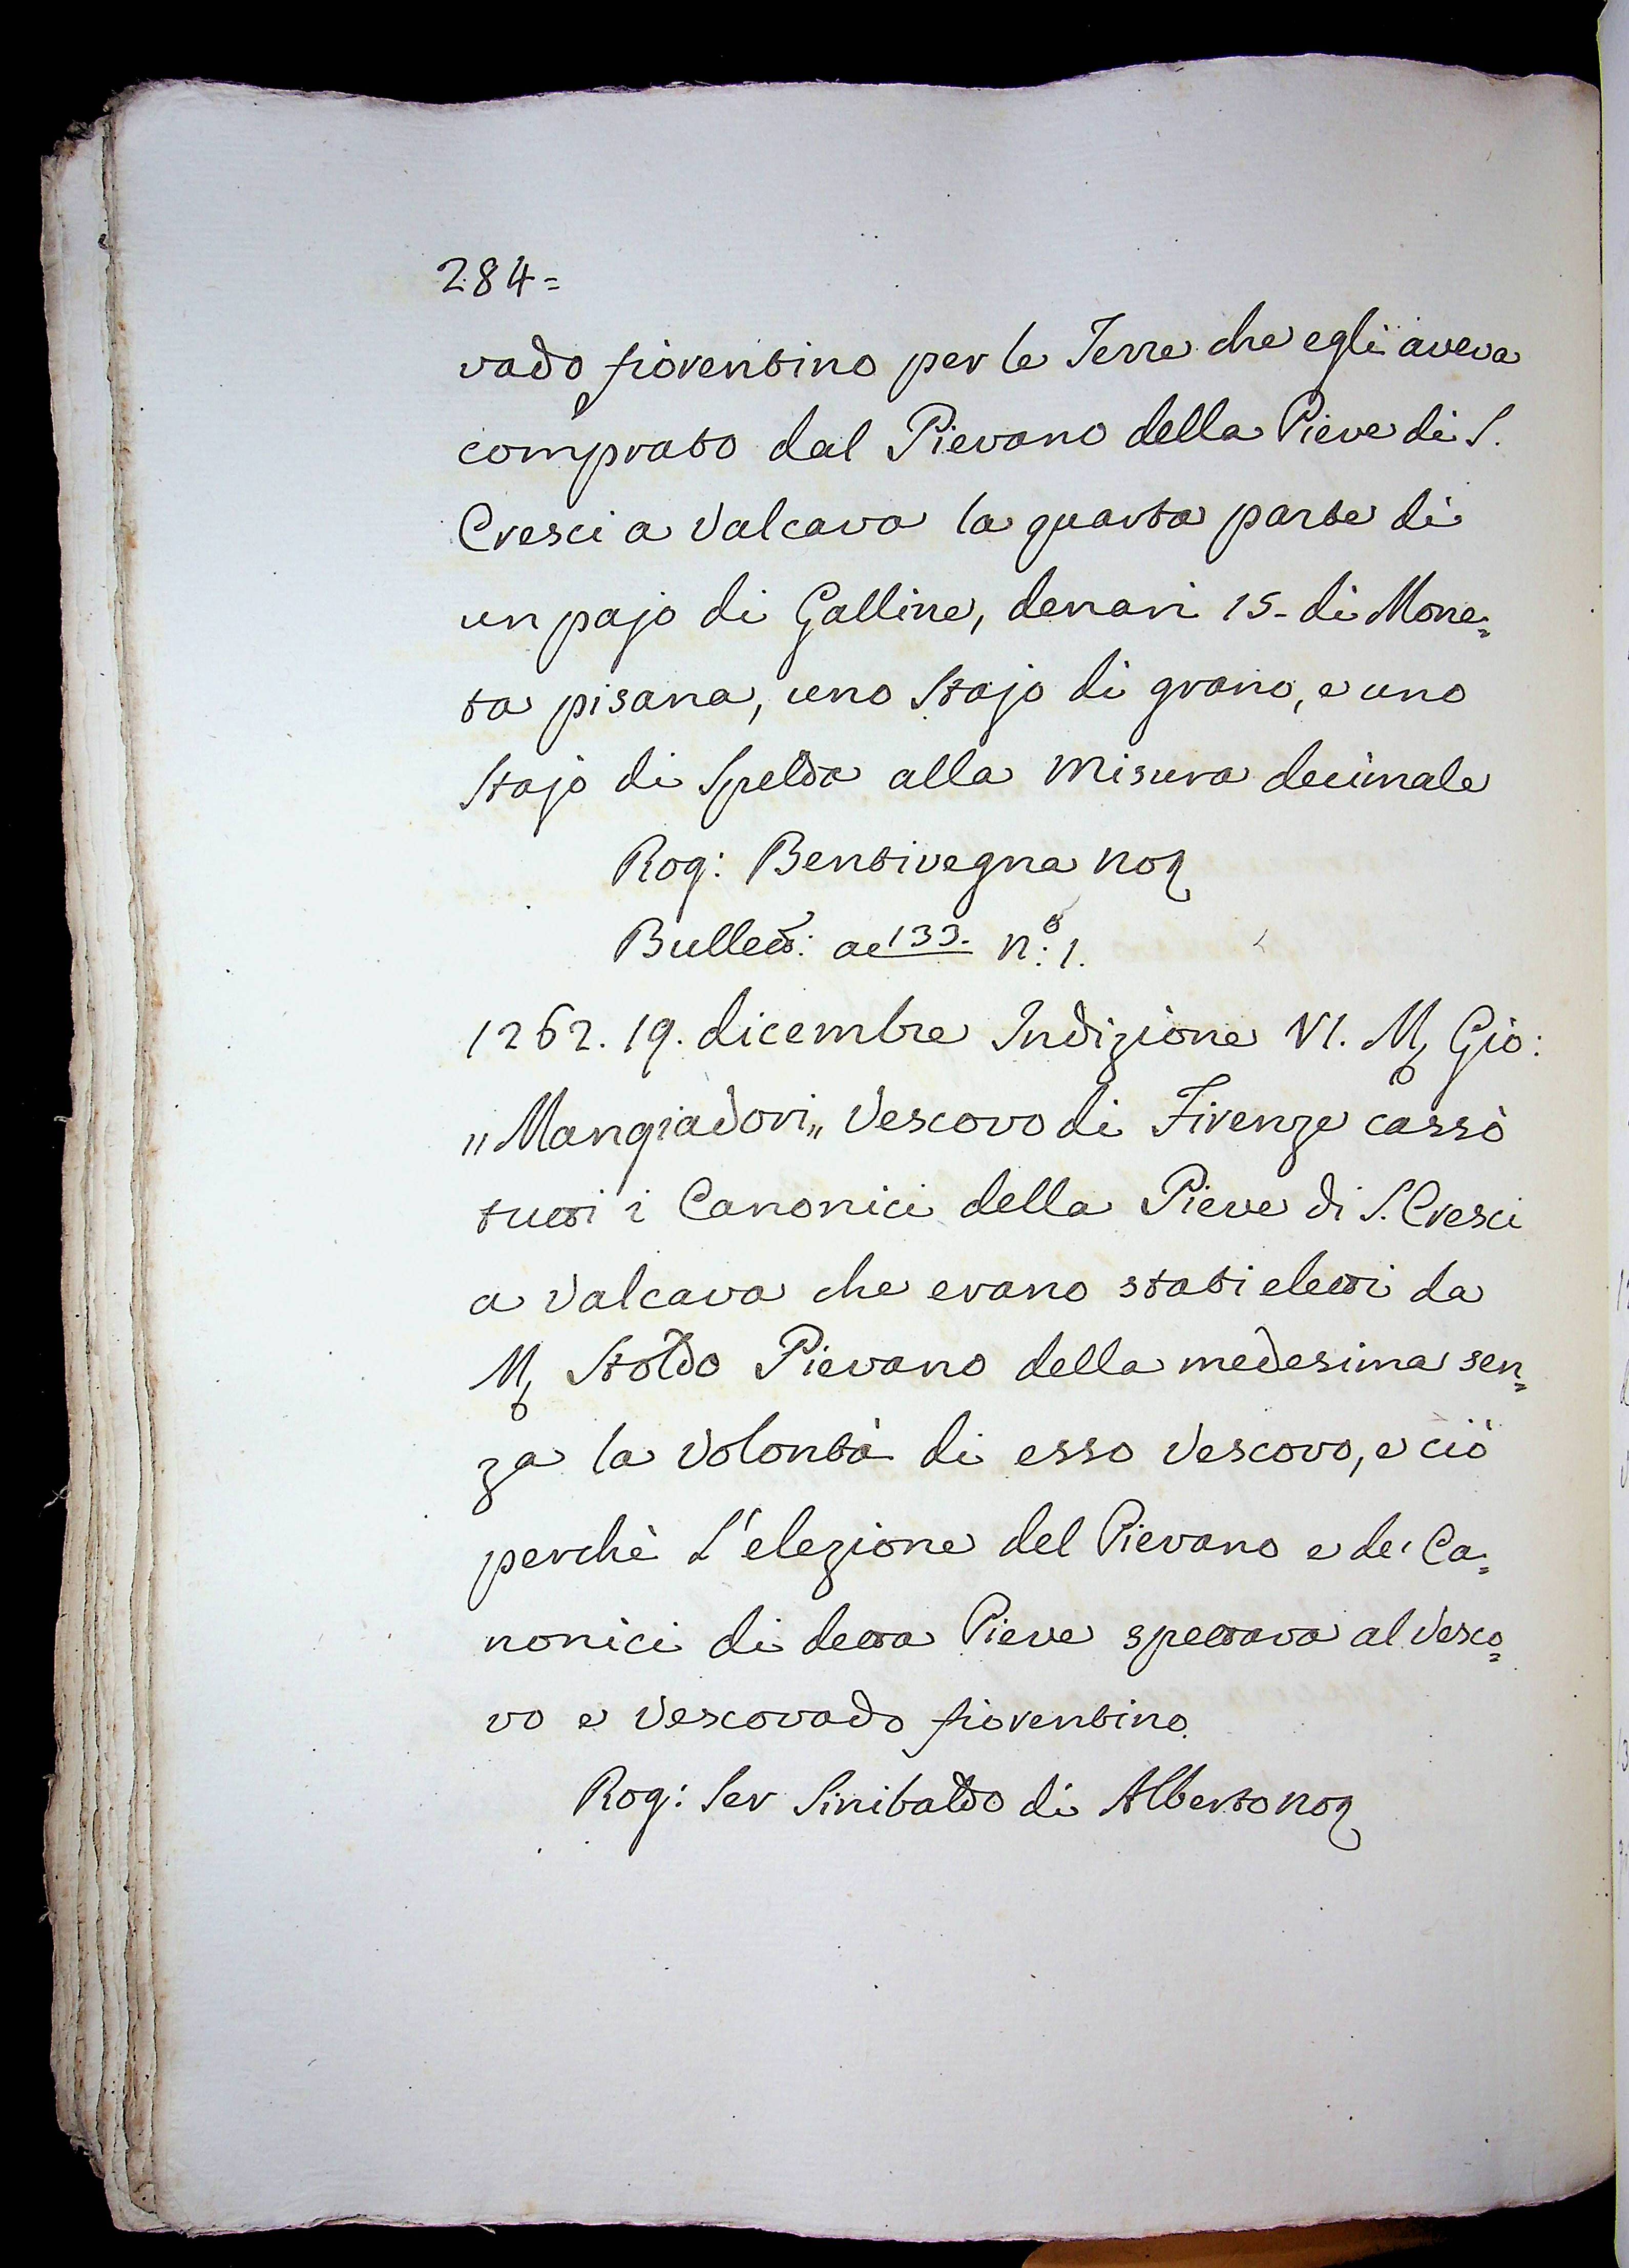 284=
vado fiorentino per le Terre che egli aveva
comprato dal Pievano della Pieve di S.
Cresci a Valcava la quarta parte di
un pajo di Galline, denari 15- di Mone=
ta pisana, uno Stajo di grano, e uno
Stajo di Spelda alla Misura decimale
Rog: Bentivegna Not
Bullett: ac 133. nº: 1.
1262. 19. dicembre Indizione VI. M. Gio:
"Mangiadori" Vescovo di Firenze cassò
tutti i Canonici della Pieve di S. Cresci
a Valcava che erano stati eletti da
M. Stoldo Pievano della medesima sen=
za la Volontà di esso Vescovo, e ciò
perchè L'elezione del Pievano e de' Ca=
nonici di detta Pieve spettava al Vesco=
vo e Vescovado fiorentino.
Rog: Ser Sinibaldo di Alberto Not